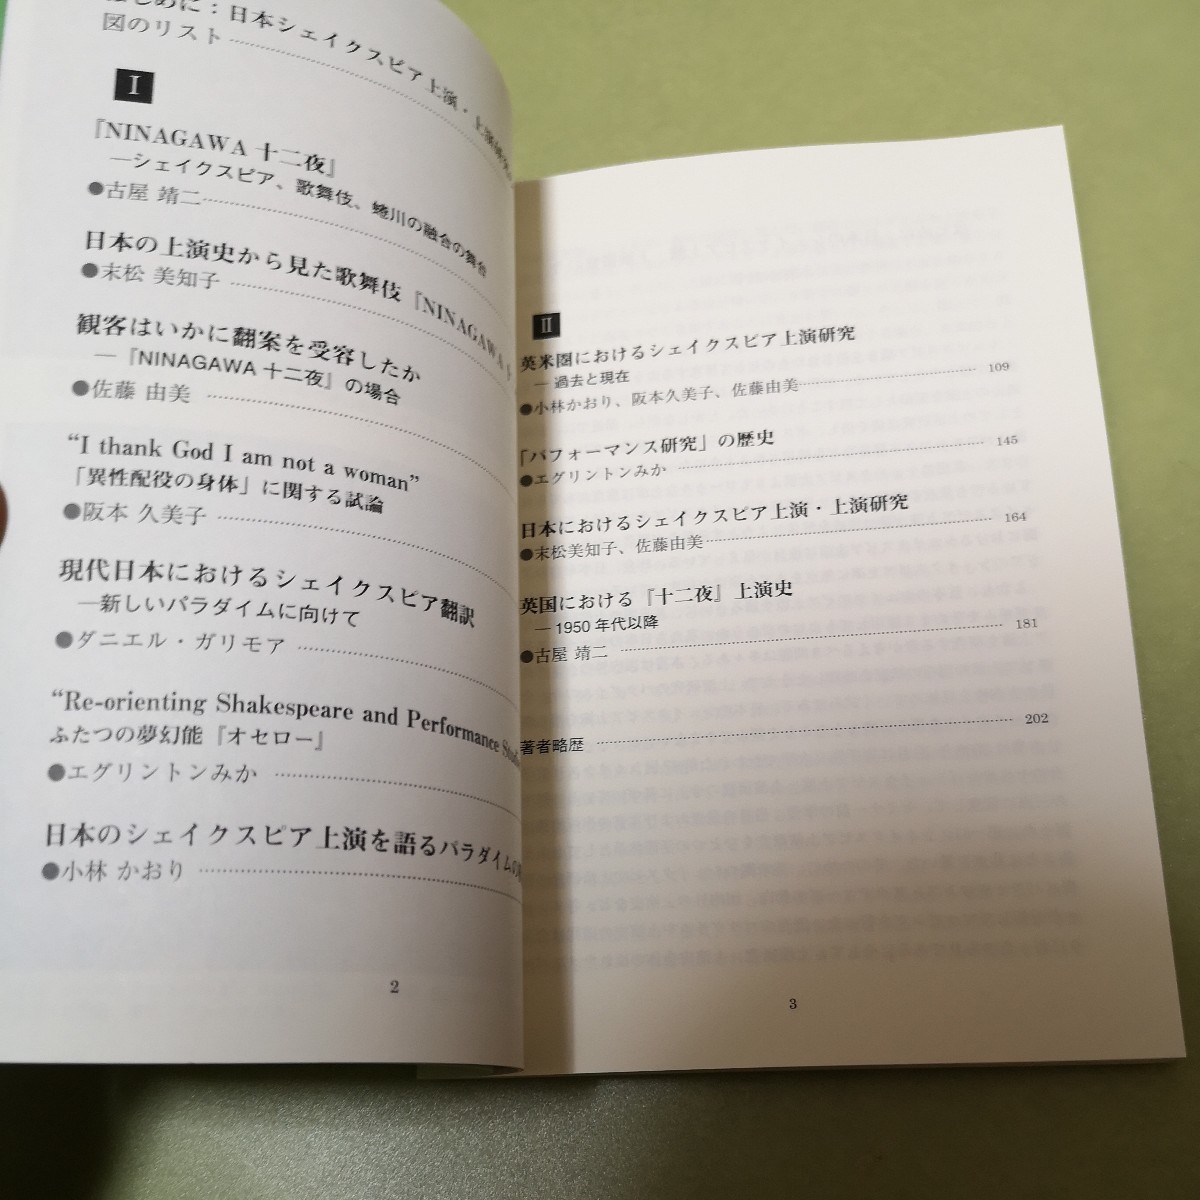 はじめに：日本シェイクスピア上演・上演研究の
図のリスト
I
『NINAGAWA 十二夜』
―シェイクスピア、歌舞伎、蜷川の融合の舞台
●古屋 靖二
日本の上演史から見た歌舞伎『NINAGAWA 十
●末松 美知子
観客はいかに翻案を受容したか
―『NINAGAWA 十二夜』の場合
●佐藤 由美
“I thank God I am not a woman”
「異性配役の身体」に関する試論
●阪本 久美子
現代日本におけるシェイクスピア翻訳
―新しいパラダイムに向けて
●ダニエル・ガリモア
“Re-orienting Shakespeare and Performance
ふたつの夢幻能『オセロー』
●エグリントンみか
日本のシェイクスピア上演を語るパラダイムの
●小林 かおり
2
II
英米圏におけるシェイクスピア上演研究
―過去と現在
●小林かおり、阪本久美子、佐藤由美 109
「パフォーマンス研究」の歴史
●エグリントンみか 145
日本におけるシェイクスピア上演・上演研究
●末松美知子、佐藤由美 164
英国における『十二夜』上演史
―1950 年代以降
●古屋 靖二 181
著者略歴 202
3